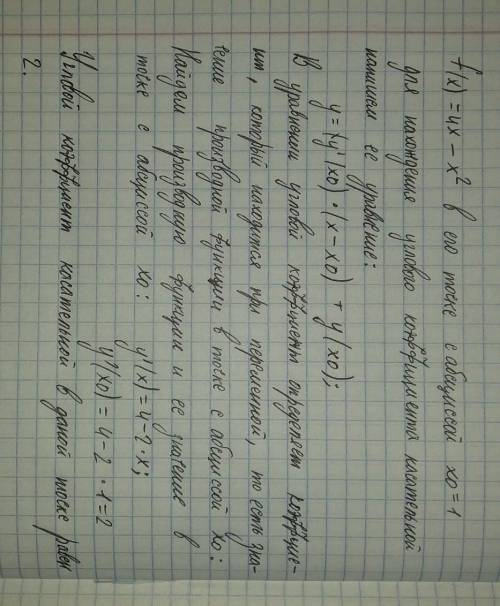 f(x) = 4x - x² в его точке с абсциссой x0 = 1
для нахождения углового коэффициента касательной
напишем ее уравнение:
y = (y'(x0) · (x - x0) + y(x0);
В уравнении угловой коэффициент определяет коэффицие-
нт, который находится при переменной, то есть зна-
чение производной функции в точке с абсциссой x0:
Найдем производную функции и ее значение в
точке с абсциссой x0: y'(x) = 4 - 2 · x;
y'(x0) = 4 - 2 · 1 = 2
Угловой коэффициент касательной в даной точке равен
2.